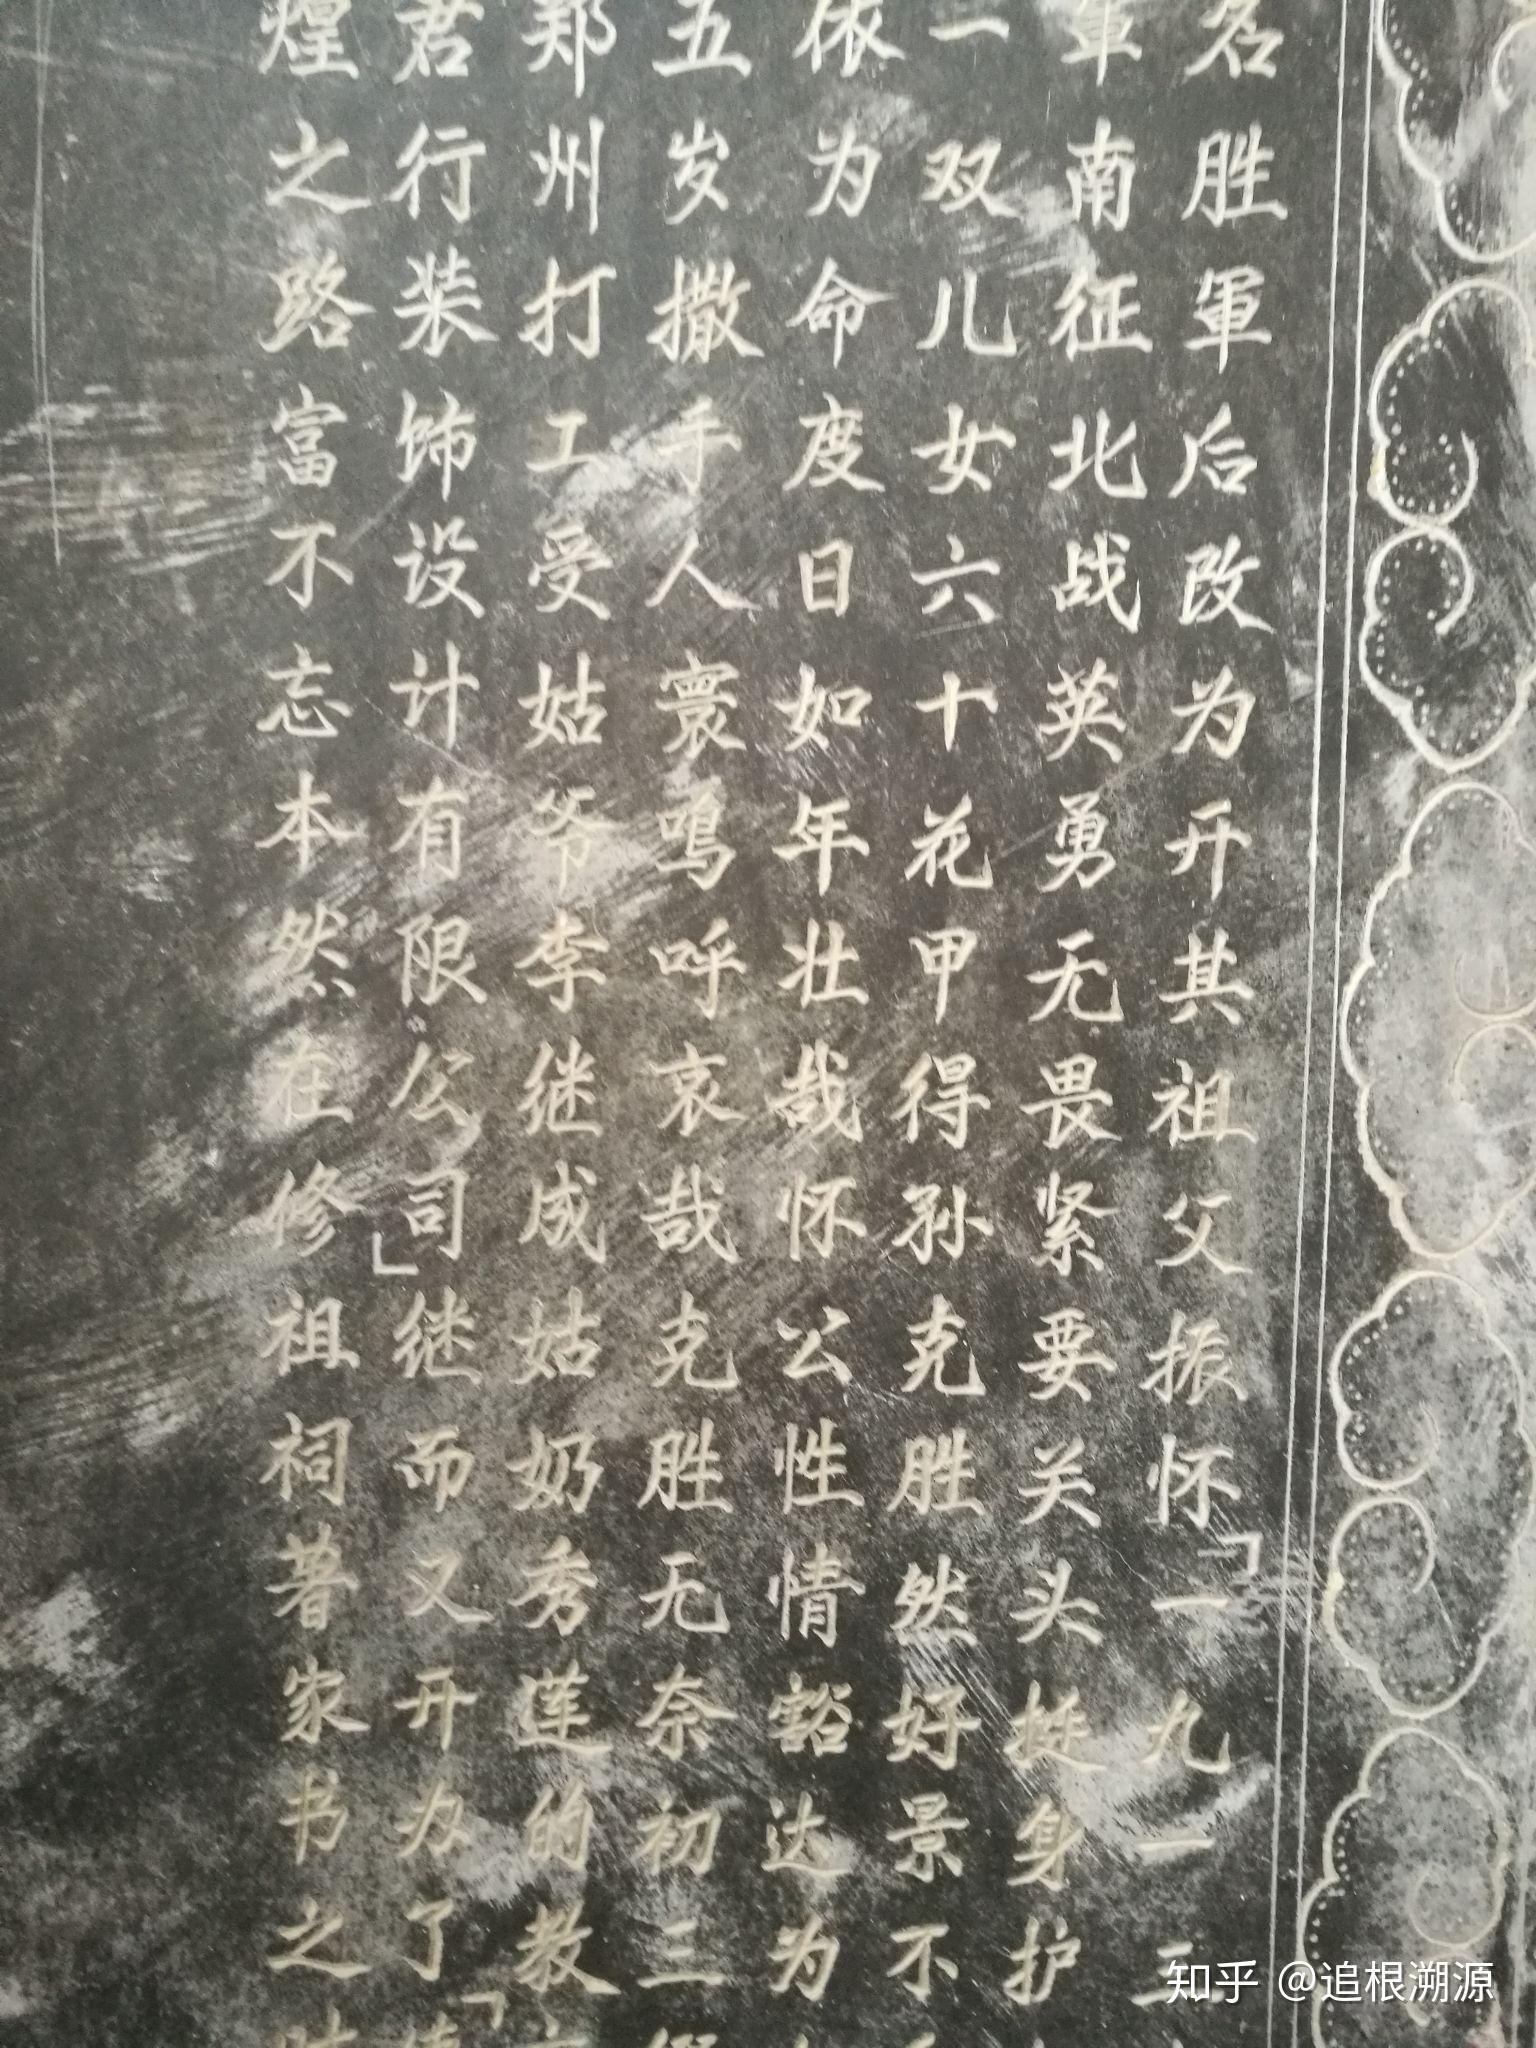 名胜軍后改为开其祖父振怀「一九一二
章南征北战英勇无畏紧要关头挺身护
一双儿女六十花甲得孙克胜然好景不
依为命度日如年壮哉怀公性情豁达为
五岁撒手人寰鸣呼哀哉克胜无奈初二
郑州打工受姑爷李继成姑奶秀莲的教
君行装饰设计有限公司」继而又开办了「
煌之路富不忘本然在修祖祠著家书之
知乎 @追根溯源